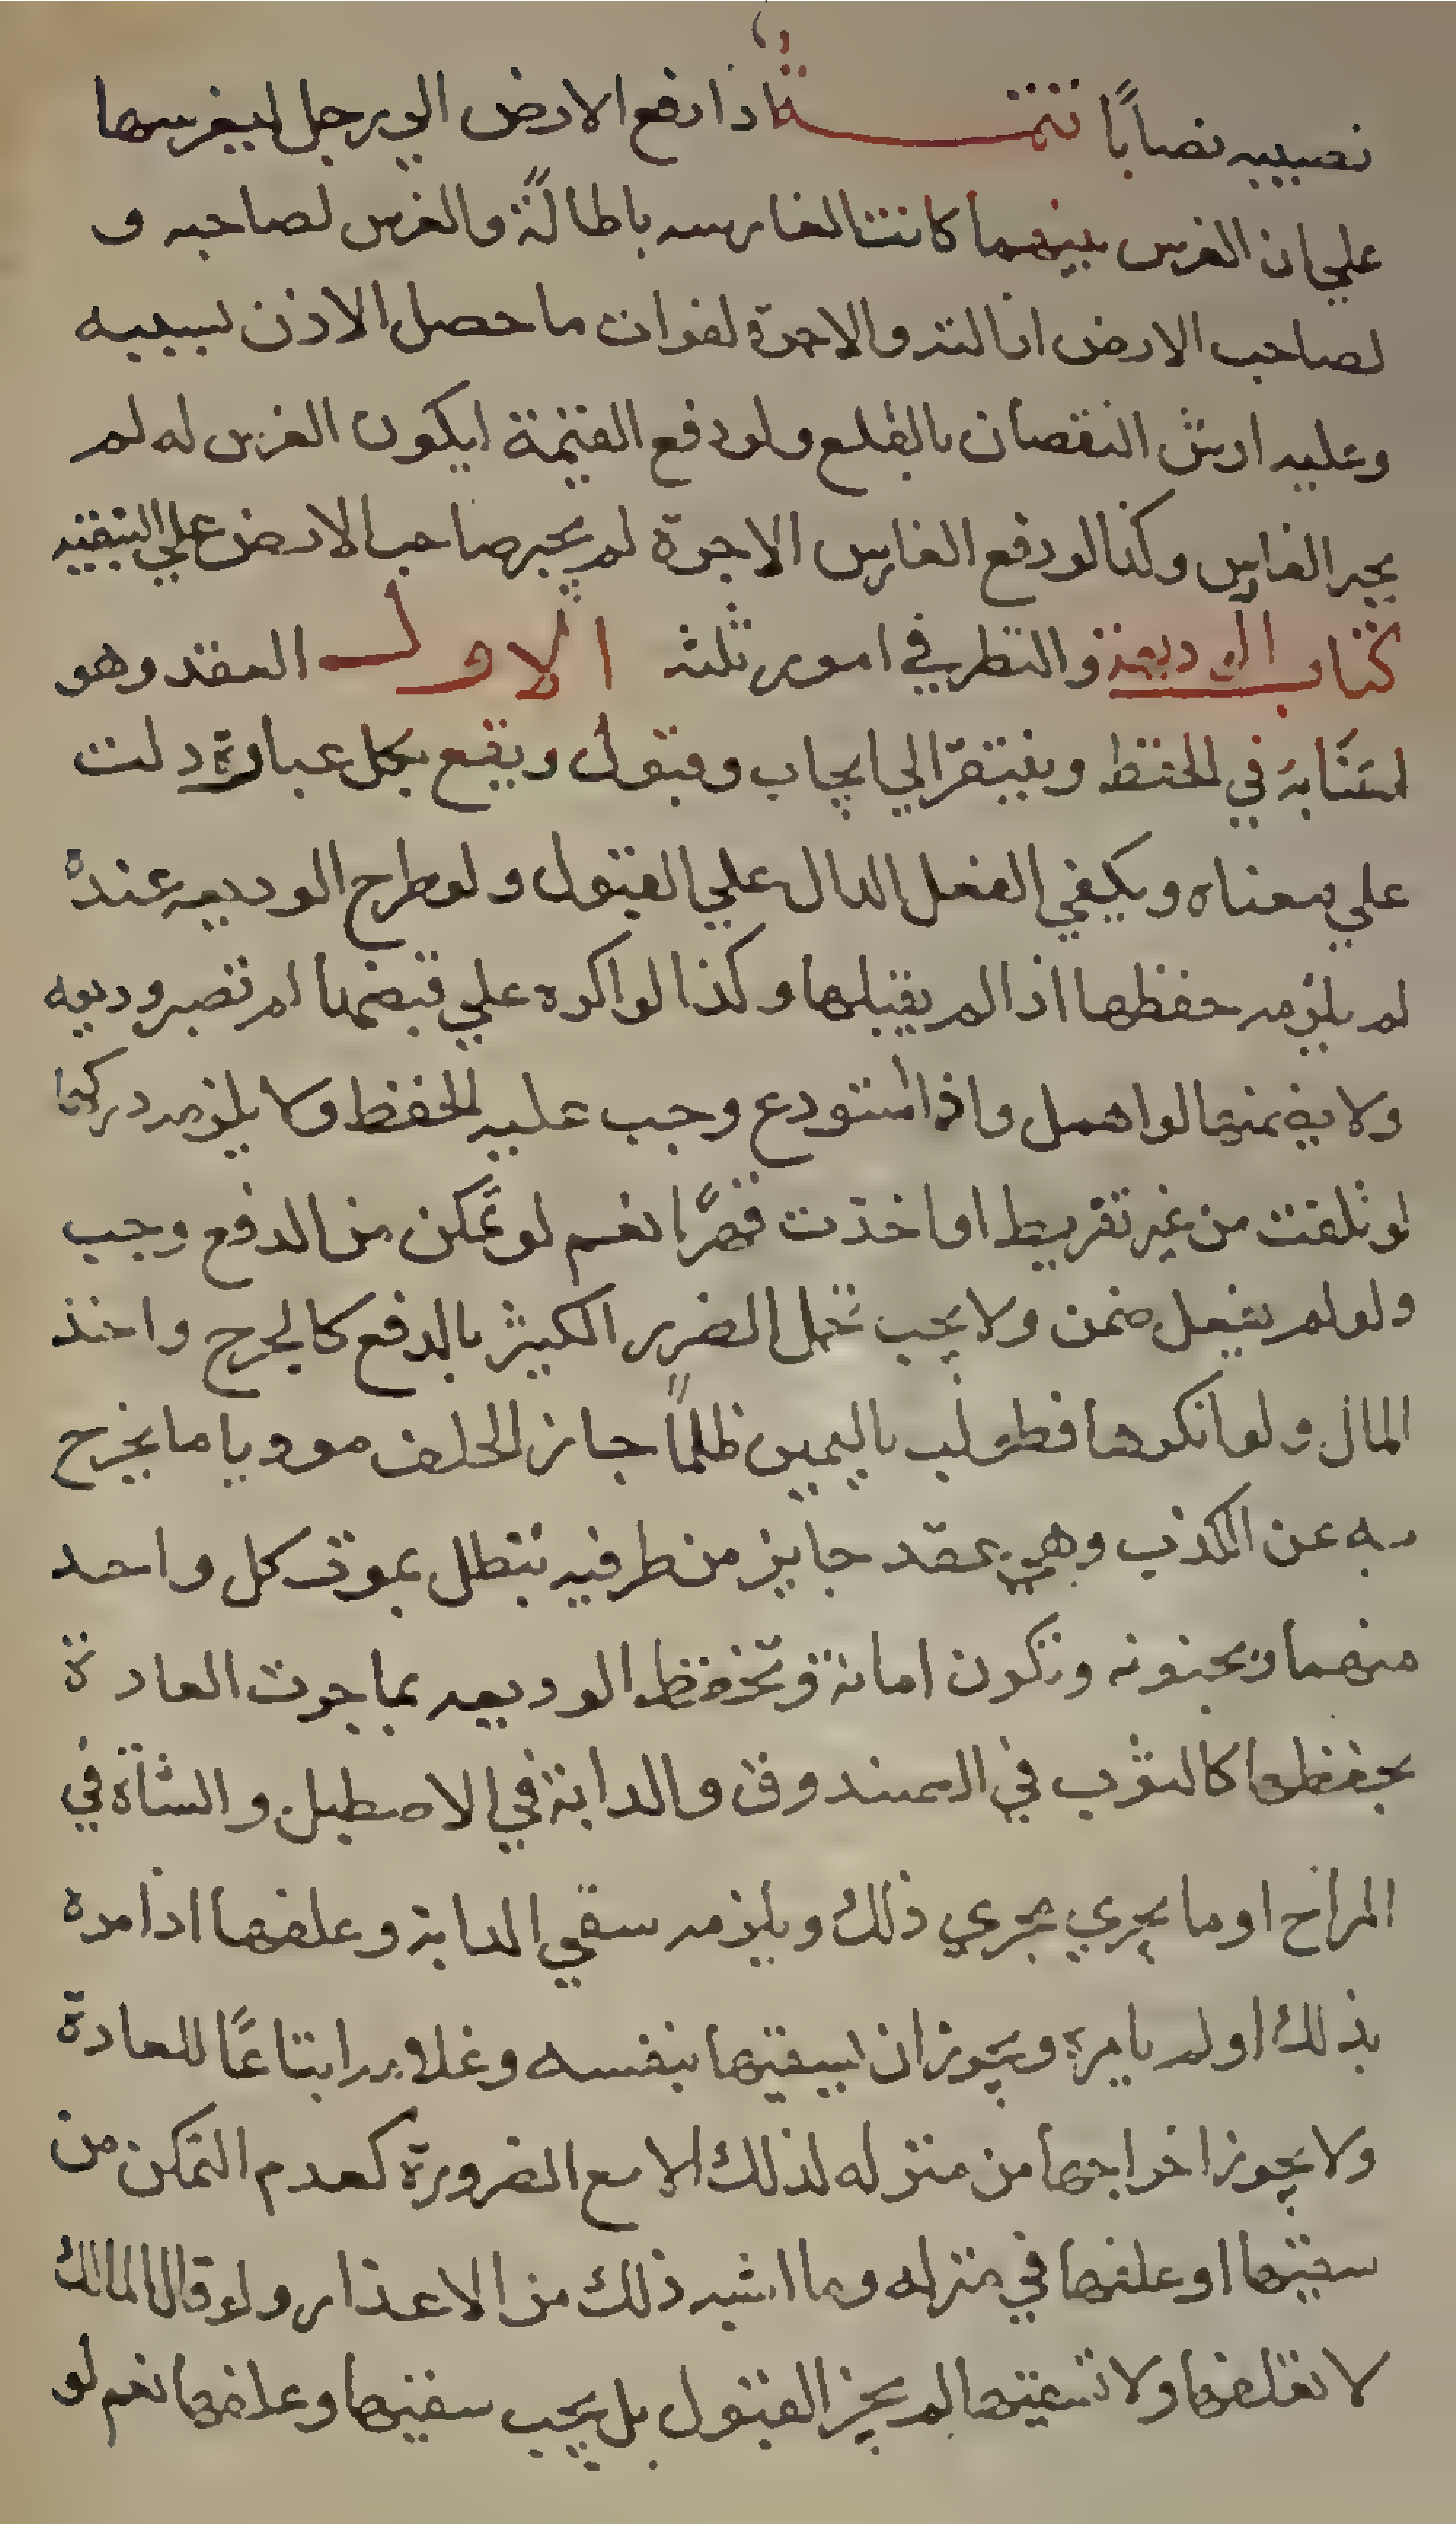 نصيبيه نصابًا تتمة اذا دفع الارض الي رجل ليغرسها
علي ان الغرس بينهما كانت المغارسه باطالةً والغرس لصاحبه و
لصاحب الارض ازالته والاجرة لفوات ما حصل الاذن بسببه
وعليه ارش النقصان بالقلع ولو دفع القيمة ليكون الغرس له لم
يجبر الغارس وكذا لو دفع الغارس الاجرة لم يجبر صاحب الارض علي التبقيه
كتاب الوديعة والنظر في امور ثلثه الاول العقد وهو
استنابة في الحفظ ويفتقر الي ايجاب وقبول ويقع بكل عبارة دلت
علي معناه ويكفي الفعل الدال علي القبول ولو طرح الوديعه عنده
لم يلزمه حفظها اذا لم يقبلها وكذا لو اكره علي قبضها لم تصر وديعه
ولا يضمنها لو اهمل واذا استودع وجب عليه الحفظ ولا يلزمه دركها
لو تلفت من غير تفريط او اخذت قهرًا نعم لو تمكن من الدفع وجب
ولو لم يفعل ضمن ولا يجب تحمل الضرر الكثير بالدفع كالجرح واخذ
المال ولو انكرها فطولب باليمين ظلمًا جاز الحلف موريا ما يخرج
به عن الكذب وهي عقد جايز من طرفيه تبطل بموت كل واحد
منهما وبجنونه وتكون امانة وتحفظ الوديعه بما جرت العادة
بحفظها كالثوب في الصندوق والدابة في الاصطبل والشاة في
المراح او ما يجري مجري ذلك ويلزمه سقي الدابة وعلفها اذا امره
بذلك او لم يامره ويجوز ان يسقيها بنفسه وغلامه ابتاعًا للعادة
ولا يجوز اخراجها من منزله لذلك الا مع الضرورة كعدم التمكن من
سقيها او علفها في منزله وما اشبه ذلك من الاعذار ولو قال المالك
لا تعلفها ولا تسقيها لم يجز القبول بل يجب سقيها وعلفها نعم لو